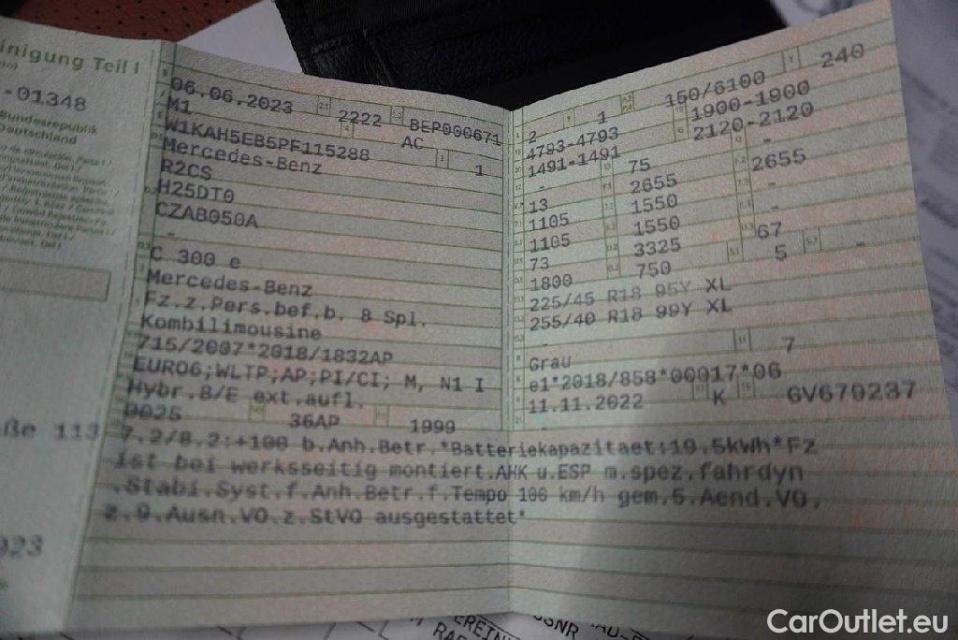 inigung Teil I
-01348
Bundesrepublik
Deutschland
06.06.2023 2222 BEP000671
M1 AC
W1KAH5EB5PF115288 1
Mercedes-Benz
R2CS
H25DT0
CZAB050A
-
C 300 e
Mercedes-Benz
Fz.z.Pers.bef.b. 8 Spl.
Kombilimousine
715/2007*2018/1832AP
EURO6;WLTP;AP;PI/CI; M, N1 I
Hybr.B/E ext.aufl.
0025 36AP 1999
2 1 150/6100 240
4793-4793 1900-1900
1491-1491 2120-2120
- 75 -
13 2655 2655
1105 1550 -
1105 1550 -
73 3325 67
1800 750 5 -
225/45 R18 95Y XL
255/40 R18 99Y XL
-
Grau 7
e1*2018/858*00017*06
11.11.2022 K GV679237
7.2/8.2:+100 b.Anh.Betr.*Batteriekapazitaet:19.5kWh*Fz
ist bei werksseitig montiert.AHK u.ESP m.spez.fahrdyn
.Stabi.Syst.f.Anh.Betr.f.Tempo 100 km/h gem.5.Aend.VO.
z.9.Ausn.VO.z.StVO ausgestattet*
ße 113
023
CarOutlet.eu